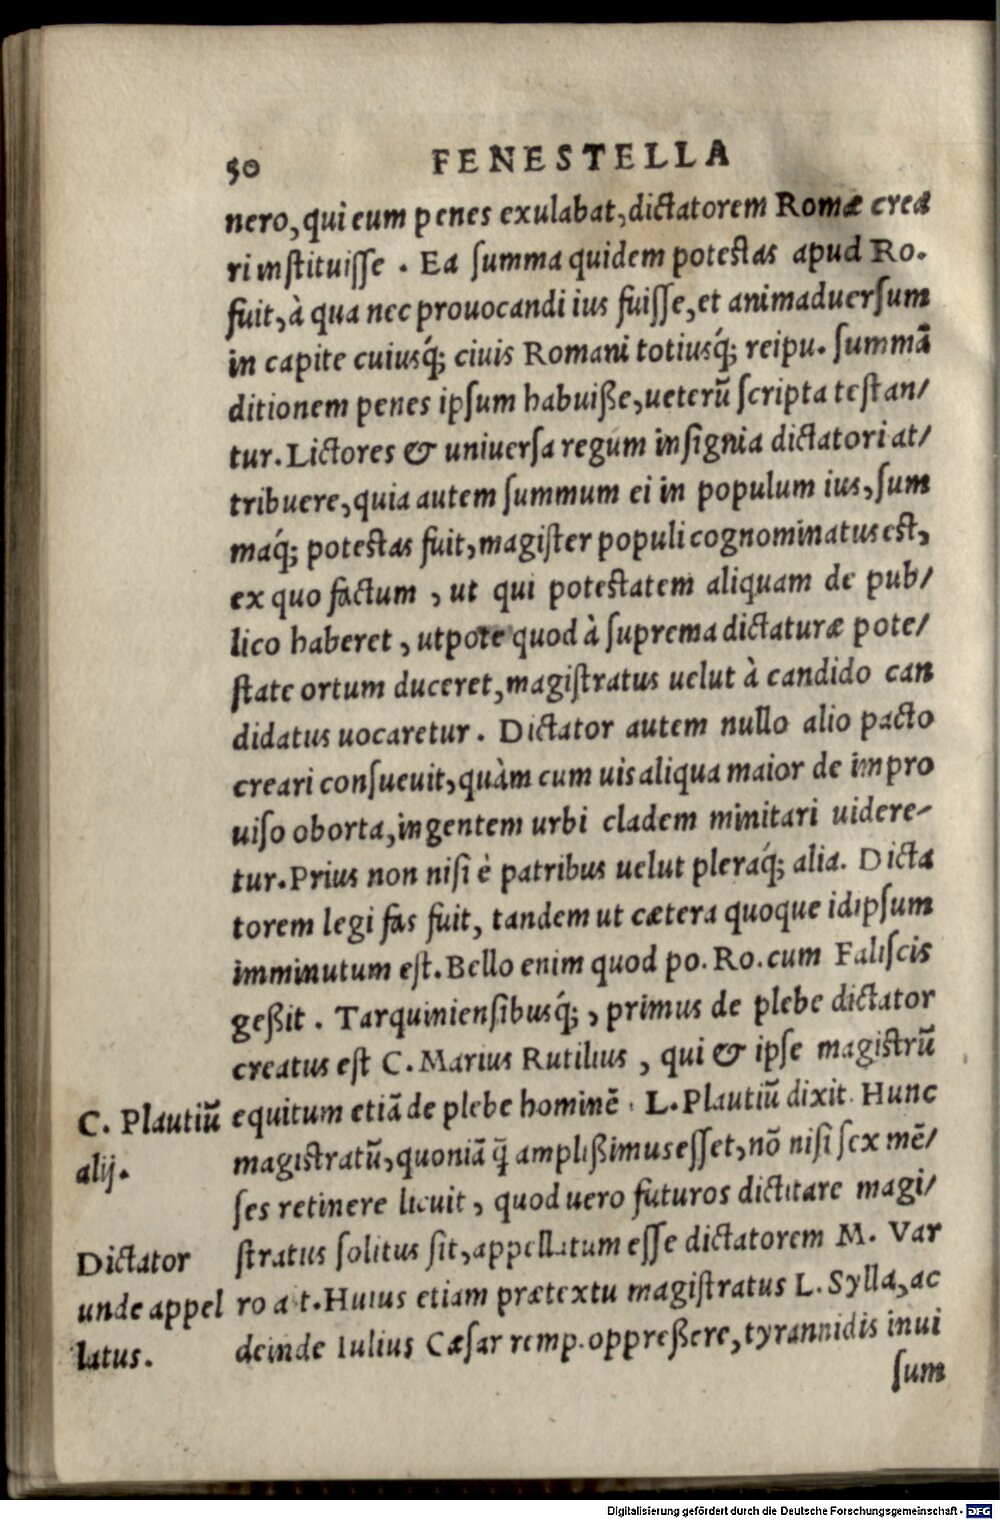 50 FENESTELLA
nero, qui eum penes exulabat, dictatorem Romæ crea
ri instituisse . Ea summa quidem potestas apud Ro.
fuit, à qua nec prouocandi ius fuisse, et animaduersum
in capite cuiusq́; ciuis Romani totiusq́; reipu. summã
ditionem penes ipsum habuiße, ueterũ scripta testan/
tur. Lictores & uniuersa regum insignia dictatori at/
tribuere, quia autem summum ei in populum ius, sum
maq́; potestas fuit, magister populi cognominatus est,
ex quo factum , ut qui potestatem aliquam de pub/
lico haberet , utpote quod à suprema dictaturæ pote/
state ortum duceret, magistratus uelut à candido can
didatus uocaretur . Dictator autem nullo alio pacto
creari consueuit, quàm cum uis aliqua maior de impro
uiso oborta, ingentem urbi cladem minitari uidere-
tur. Prius non nisi è patribus uelut pleraq́; alia. Dicta
torem legi fas fuit, tandem ut cætera quoque idipsum
imminutum est. Bello enim quod po. Ro. cum Faliscis
geßit . Tarquiniensibusq́; , primus de plebe dictator
creatus est C. Marius Rutilius , qui & ipse magistrũ
C. Plautiũ equitum etiã de plebe hominẽ . L. Plautiũ dixit. Hunc
alij. magistratũ, quoniã q̃ amplißimus esset, nõ nisi sex mẽ/
ses retinere licuit , quod uero futuros dictitare magi/
Dictator stratus solitus sit, appellatum esse dictatorem M. Var
unde appel ro ait. Huius etiam prætextu magistratus L. Sylla, ac
latus. deinde Iulius Cæsar remp. oppreßere, tyrannidis inui
sum
Digitalisierung gefördert durch die Deutsche Forschungsgemeinschaft - DFG